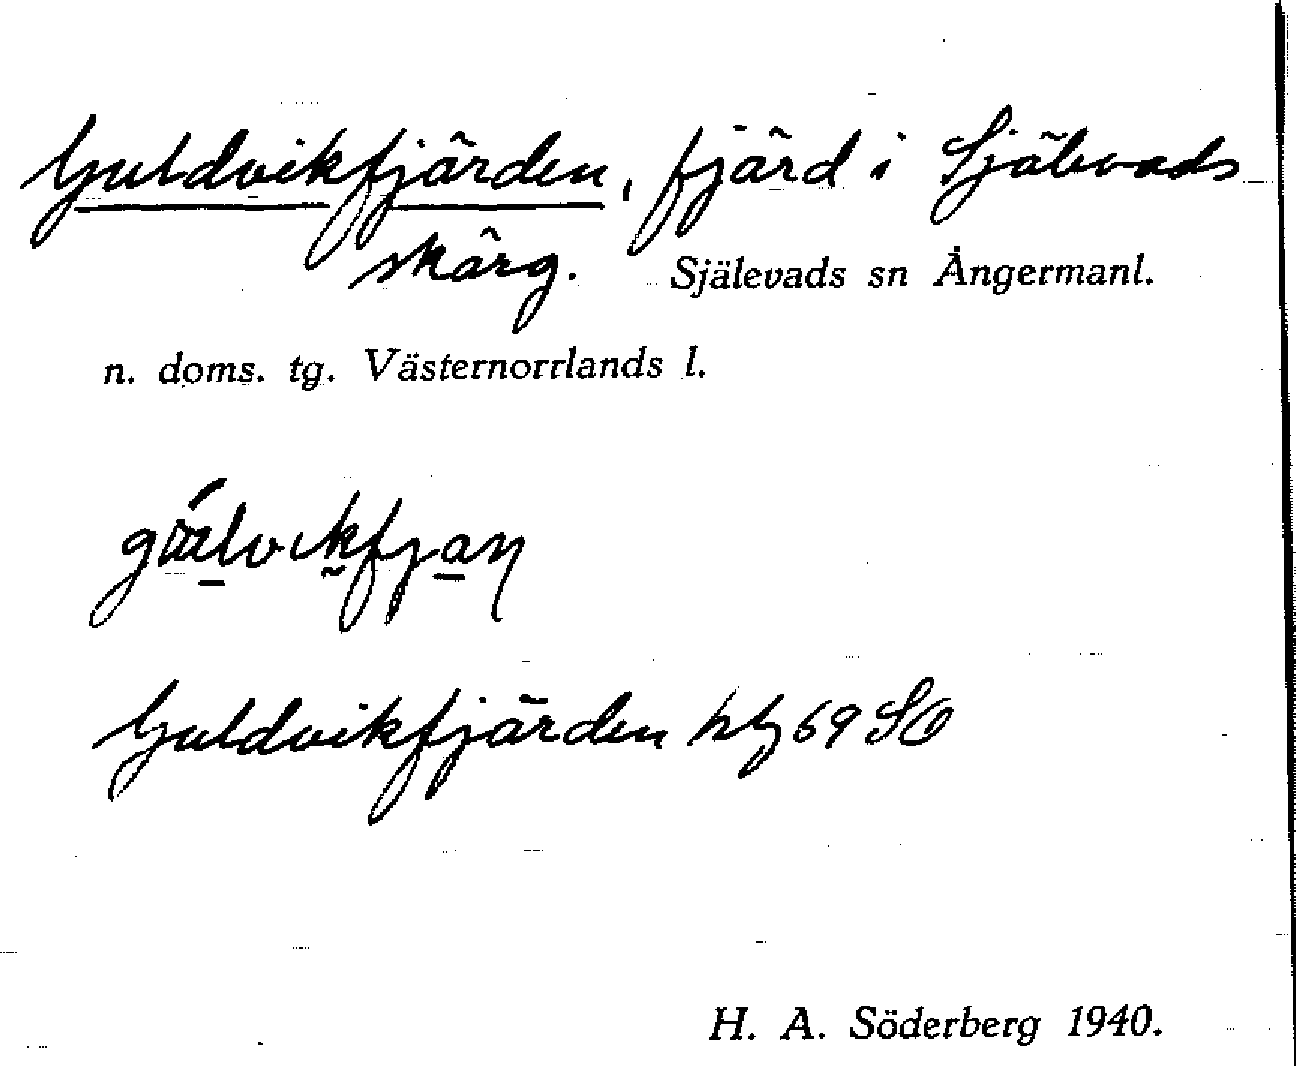 Guldvikfjärden, fjärd i Själevads
skärg. Själevads sn Ångermanl.
n. doms. tg. Västernorrlands l.
Guldvikfjärden 69 SO
H. A. Söderberg 1940.